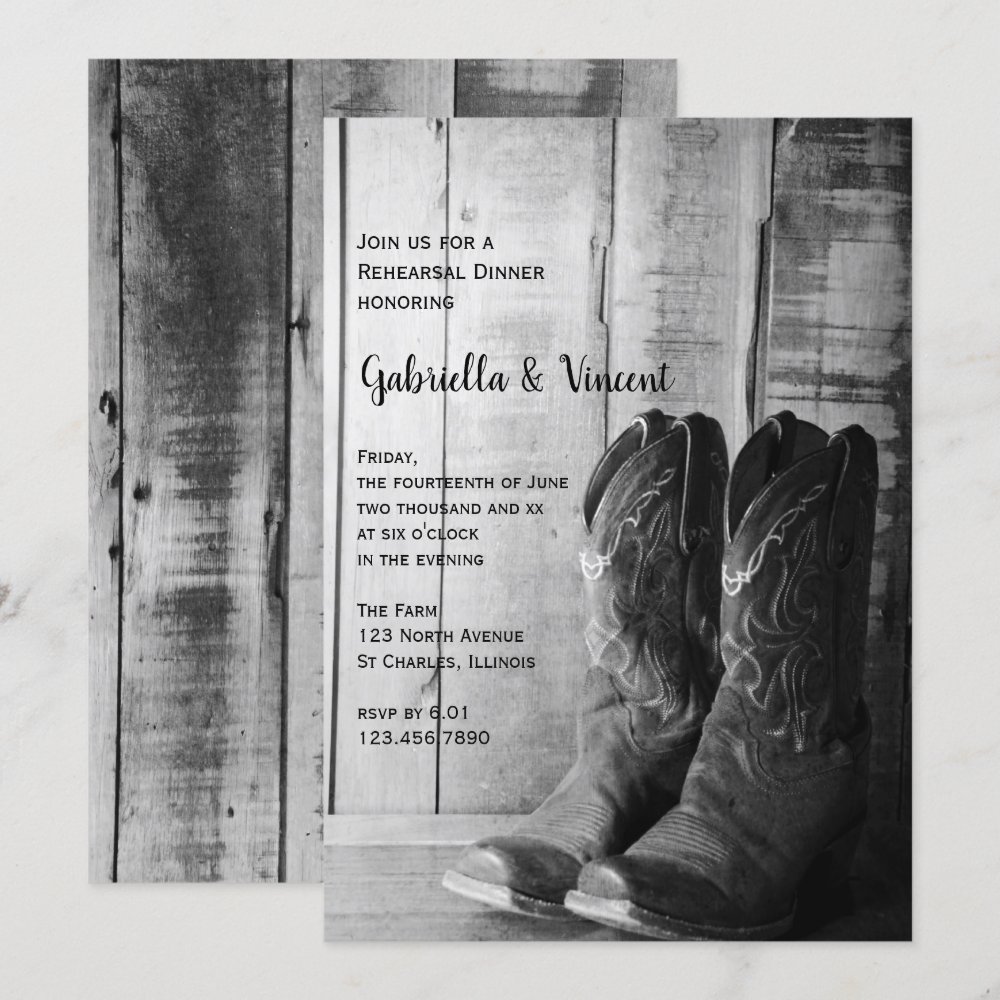 Join us for a
Rehearsal Dinner
honoring
Gabriella & Vincent
Friday,
the fourteenth of June
two thousand and xx
at six o'clock
in the evening
The Farm
123 North Avenue
St Charles, Illinois
rsvp by 6.01
123.456.7890